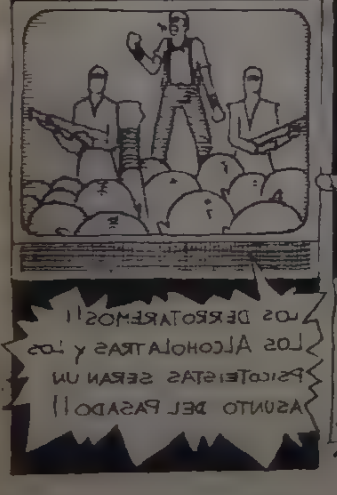 LOS DERROTAREMOS!!
LOS ALCOHOLATRAS Y LOS
PSICOTEISTAS SERAN UN
ASUNTO DEL PASADO!!